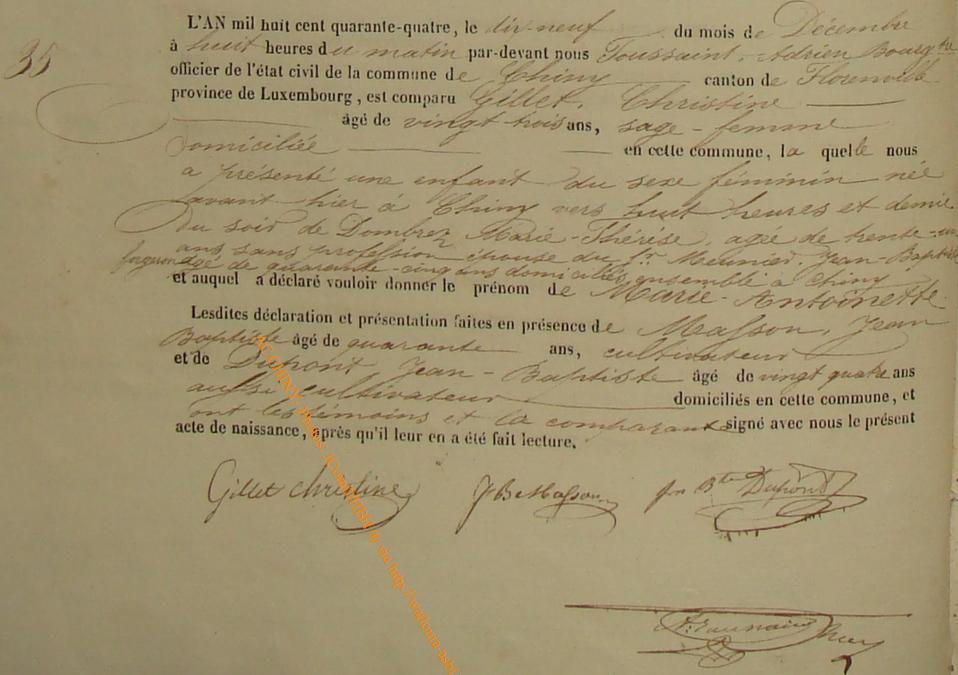 35
L'AN mil huit cent quarante-quatre, le dix-neuf du mois de Décembre
à huit heures du matin par-devant nous Toussaint, Adrien Bourg
officier de l'état civil de la commune de Chiny canton de Florenville
province de Luxembourg, est comparu Gillet, Christine
âgé de vingt trois ans, sage-femme
domiciliée en cette commune, la quelle nous
a présenté une enfant du sexe féminin née
avant hier à Chiny vers huit heures et demie
du soir de Dombrez Marie-Thérèse, agée de trente-un
ans sans profession épouse du Sr Meunier, Jean-Baptiste
forgeron agé de quarante-cinq ans domiciliés ensemble à Chiny
et auquel a déclaré vouloir donner le prénom de Marie-Antoinette
Lesdites déclaration et présentation faites en présence de Masson, Jean
Baptiste âgé de quarante ans, cultivateur
et de Dupont, Jean-Baptiste âgé de vingt quatre ans
aussi cultivateur domiciliés en cette commune, et
ont les témoins et la comparante signé avec nous le présent
acte de naissance, après qu'il leur en a été fait lecture.
Gillet christine JB Masson jn Bte Dupont
AC CHINY via http://